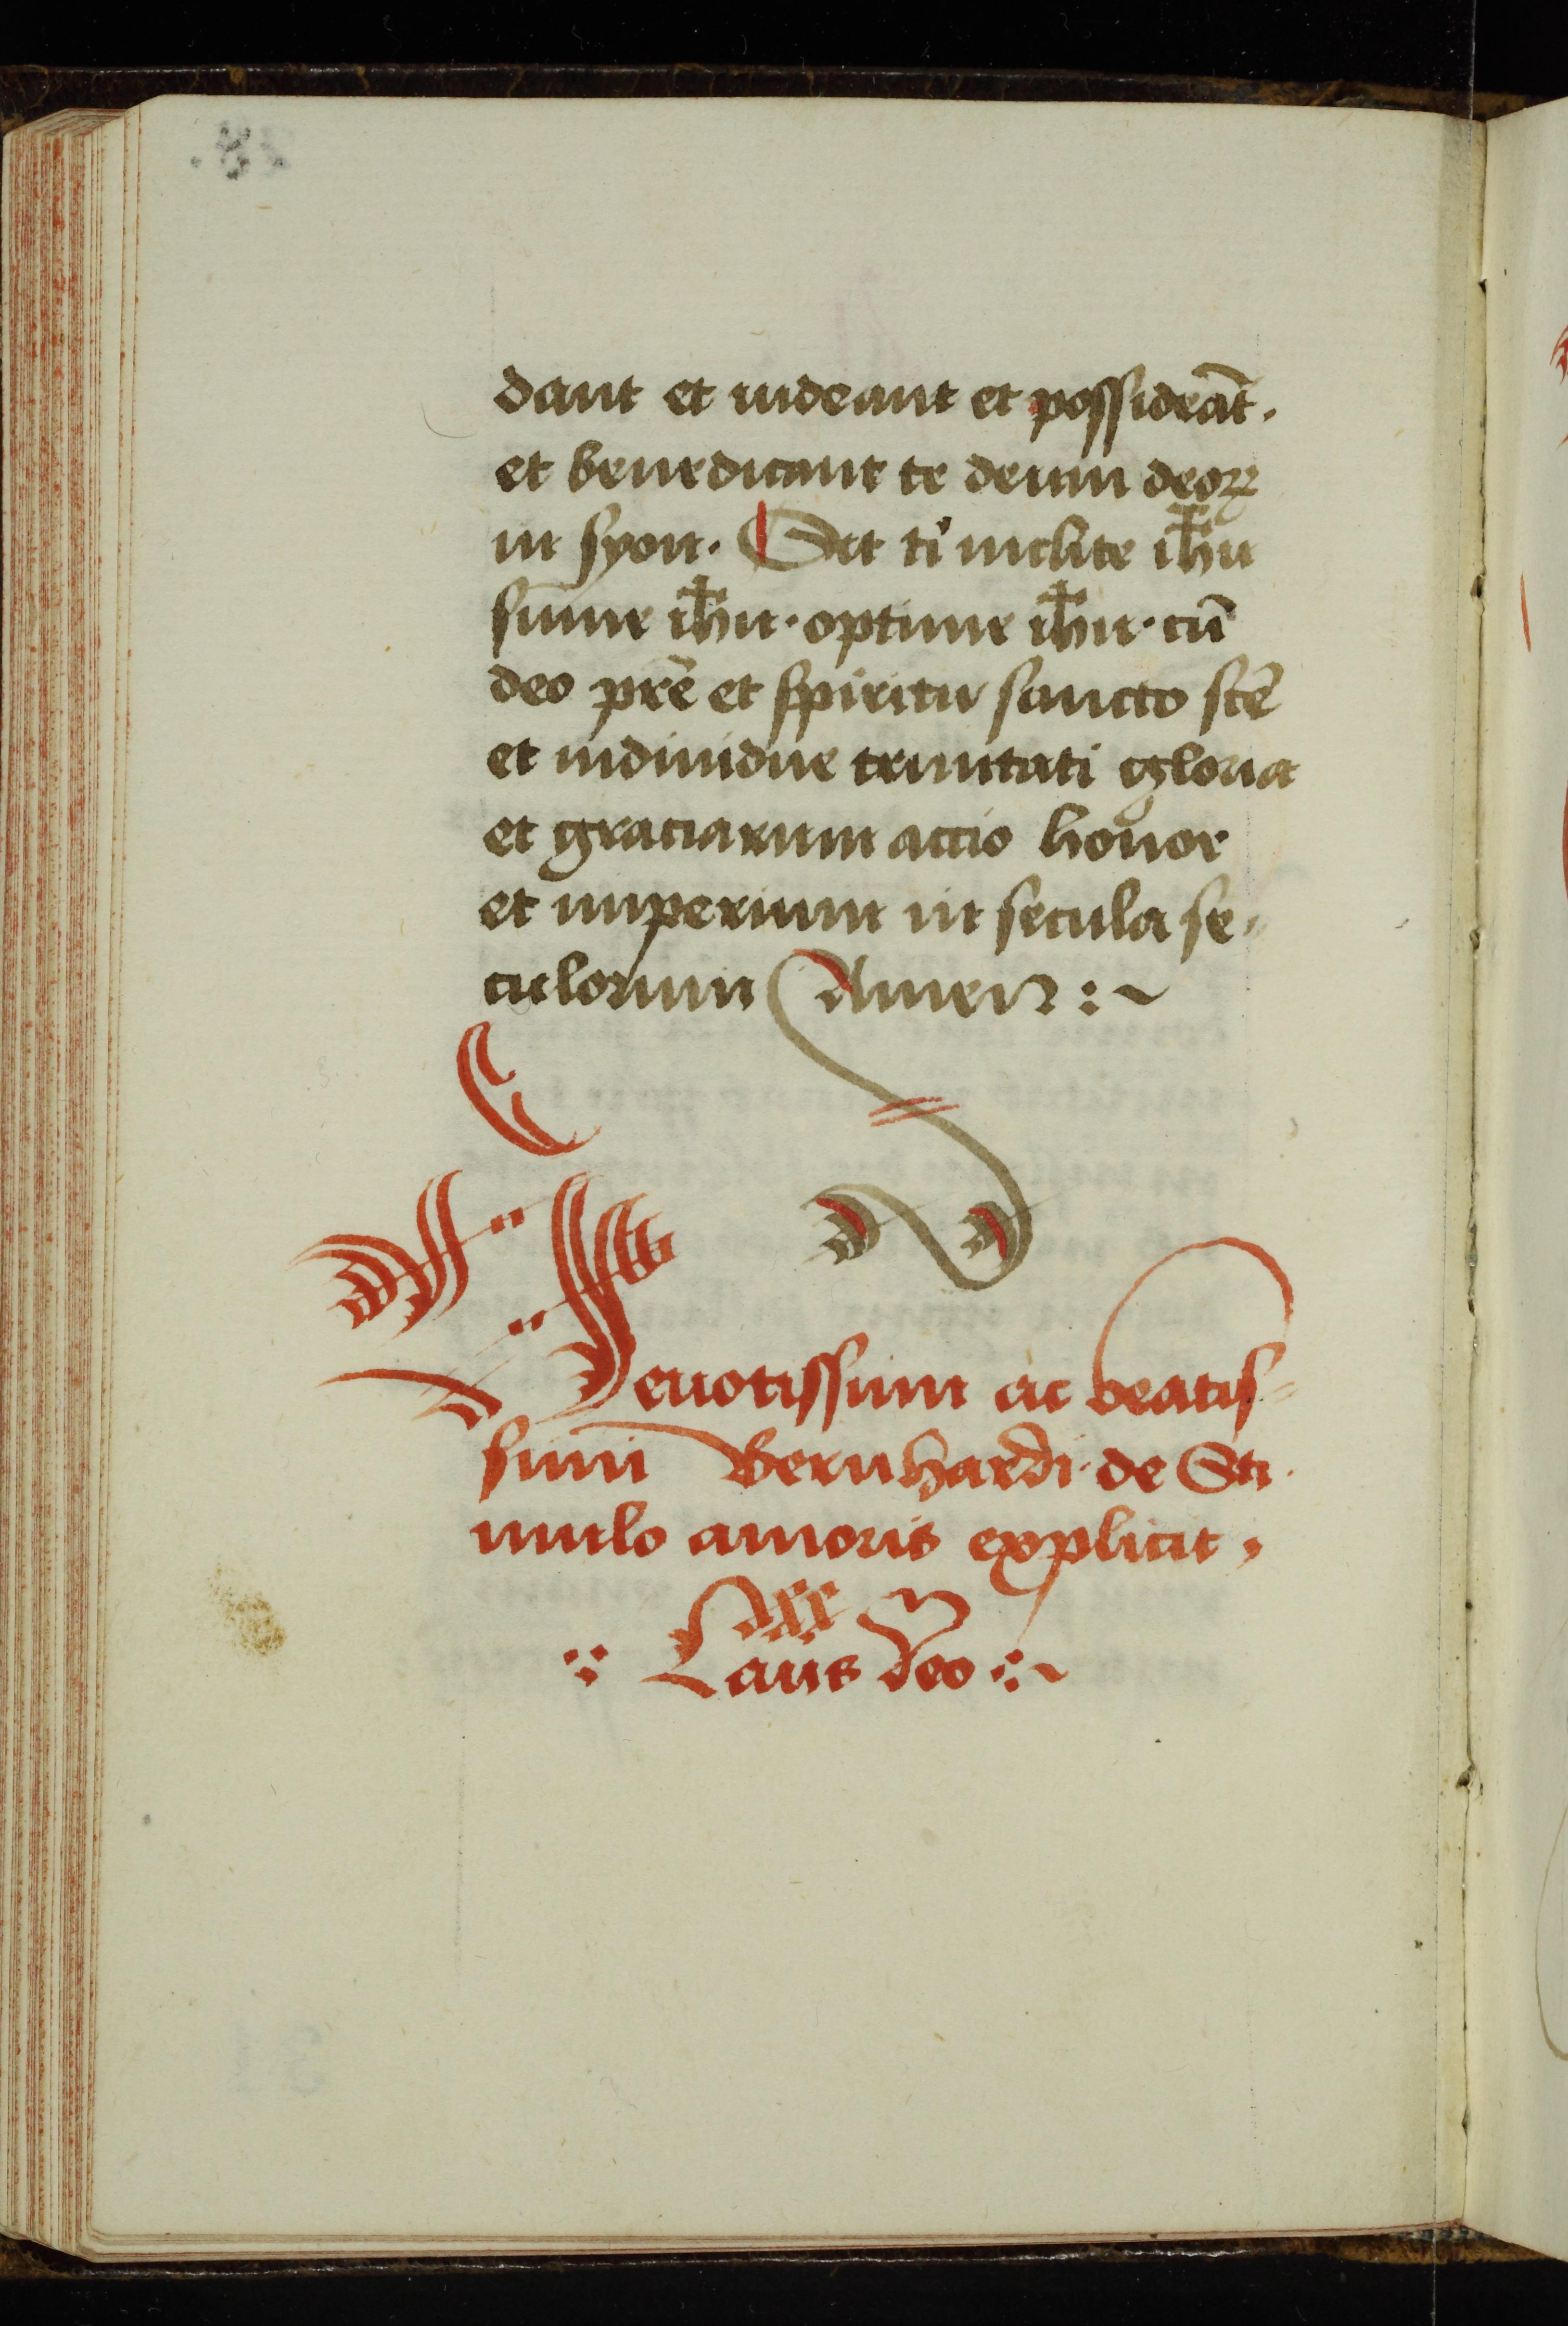 dant et uideant et possideāt.
et benedicant te deum deoꝝ
in syon. Sit tⁱ inclite ih̄u
sūme ih̄u · optime ih̄u · cū
deo prē et spiritu sancto scē
et indiuidue trinitati gloria
et graciarum actio honor
et imperium in secula se⸗
culorum Amen :~
Deuotissimi ac beatis⸗
simi Bernhardi de Sti
mulo amoris explicit,
Laus deo :~